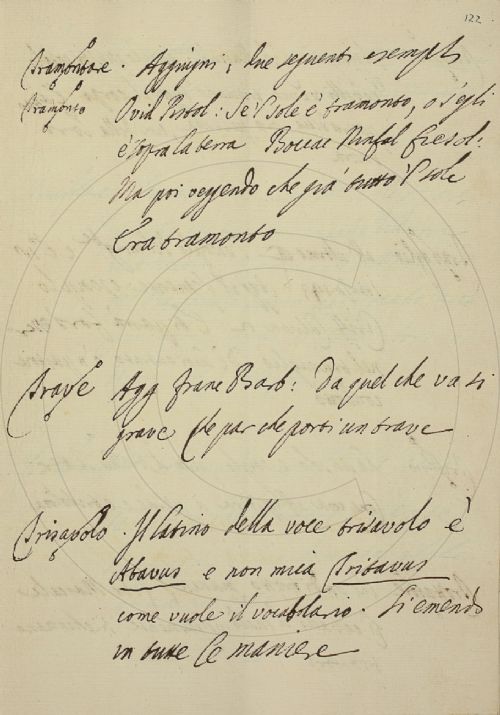 122
Tramontare. Aggiugni i due seguenti esempli
Tramonto Ovid Pistol: Se 'l sole è tramonto, o s'egli
è sopra la terra Boccac Ninfal Fiesol:
Ma poi veggendo che già tutto 'l sole
Era tramonto
Trave Agg Franc Barb: Da quel che va sì
grave Che par che porti un trave
Trisavolo. Il latino della voce trisavolo è
Abavus e non mica Tritavus
come vuole il vocabolario. Si emendi
in tutte le maniere